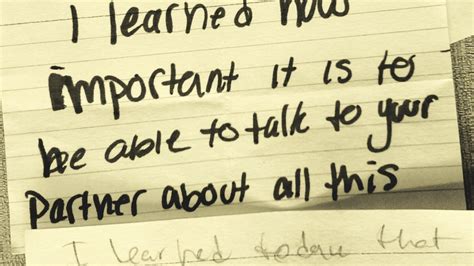 I learned how
important it is to
be able to talk to your
Partner about all this
I learned today that